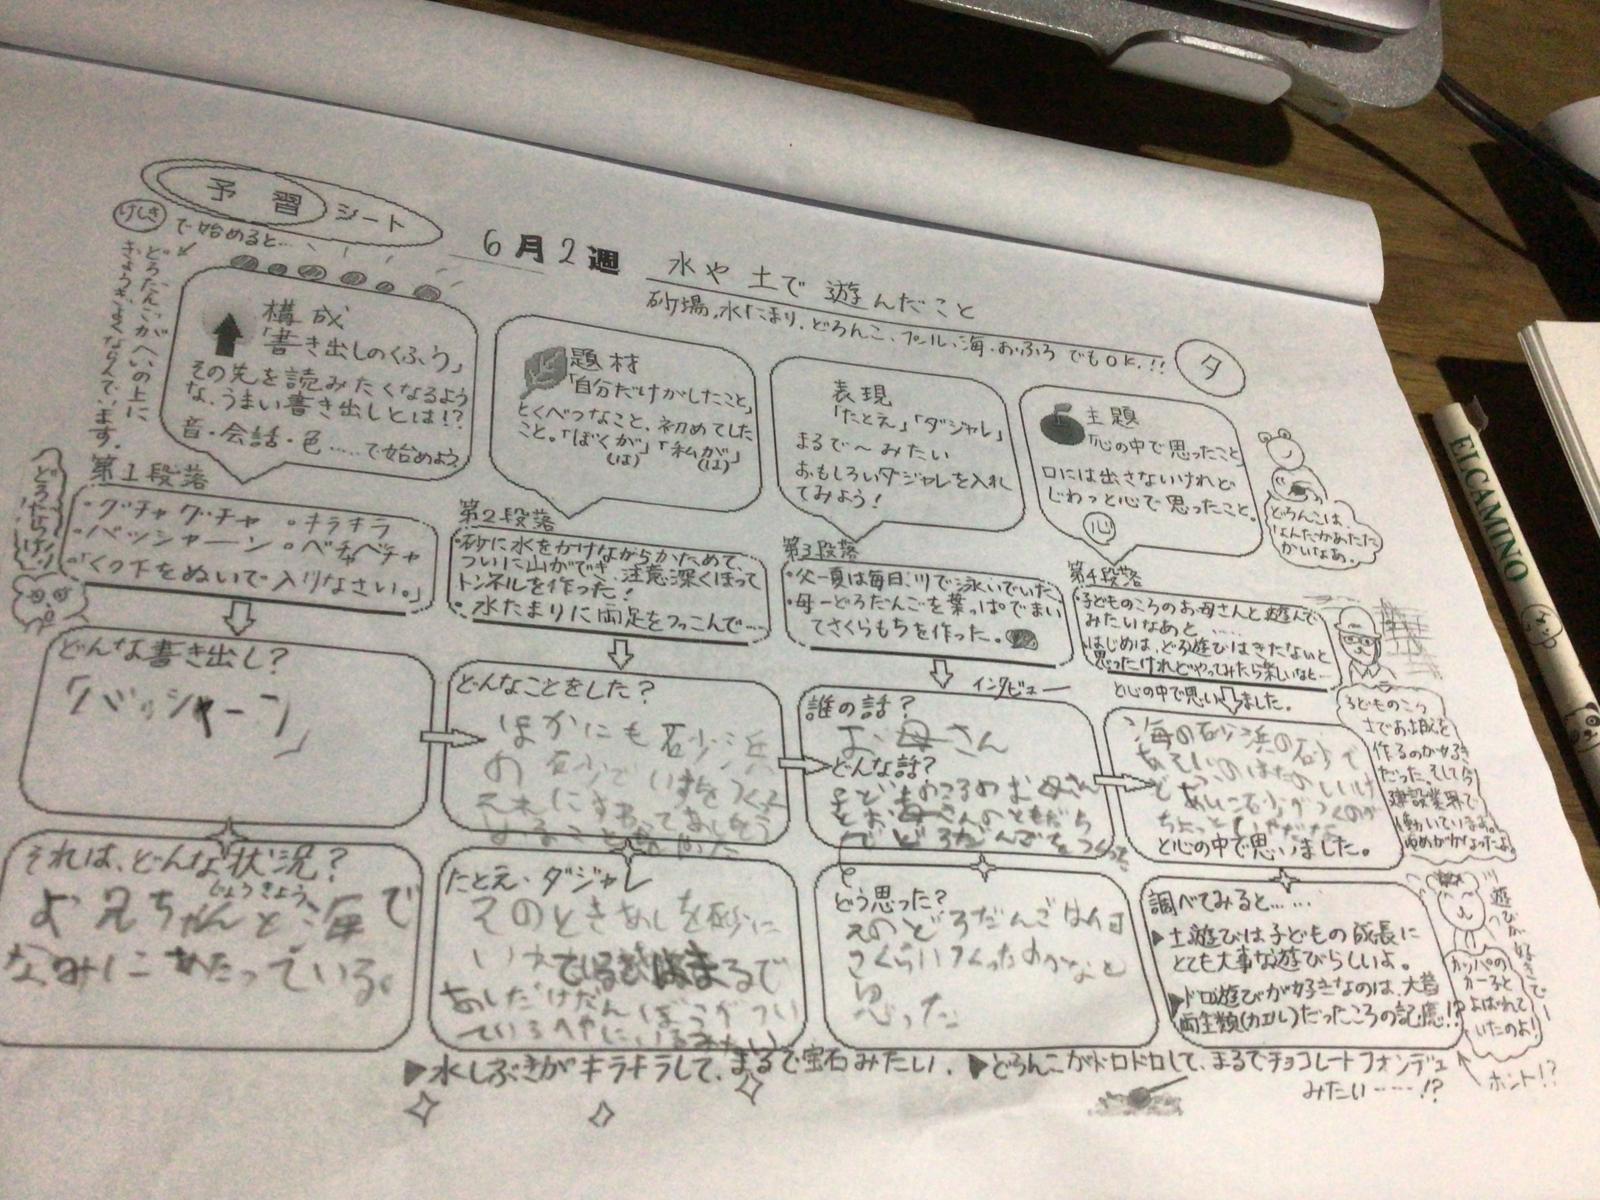 予習シート
6月2週 水や土で遊んだこと
砂場、水たまり、どろんこ、プール、海、おふろでもOK!!
夕
けしき で始めると…
どろだんごがへいの上に
きょうぎよくならんでいます。
構成
「書き出しのくふう」
その先を読みたくなるよう
な、うまい書き出しとは!?
音・会話・色……で始めよう
題材
「自分だけがしたこと」
とくべつなこと、初めてした
こと。「ぼくが」「私が」
(は) (は)
表現
「たとえ」「ダジャレ」
まるで〜みたい
おもしろいダジャレを入れ
てみよう!
主題
「心の中で思ったこと」
口には出さないけれど
じわっと心で思ったこと。
心
どろんこは、
なんだかあたた
かいなあ。
第1段落
・グチャグチャ ・キラキラ
・バッシャーン ・ベチャベチャ
・「くつ下をぬいで入りなさい。」
第2段落
・砂に水をかけながらかためて、
ついに山ができ、注意深くほって
トンネルを作った!
・水たまりに両足をつっこんで……
第3段落
・父ー夏は毎日、川で泳いでいた。
・母ーどろだんごを葉っぱでまい
てさくらもちを作った。
第4段落
・子どものころのお母さんと遊んで
みたいなあと……
はじめは、どろ遊びはきたないと
思ったけれどやってみたら楽しいなと…
と心の中で思いました。
どんな書き出し?
「バッシャーン」
どんなことをした?
ほかにも砂浜
の砂でいすをつくり
それにすわって
インタビュー
誰の話?
お母さん
どんな話?
子どものころのお母さん
とお母さんのともだち
でどろだんごをつくった
海の砂浜の砂で
あしに砂がつくのが
ちょっといやだな
と心の中で思いました。
子どものころ
土でお城を
作るのが好き
だった。そして今
建設業界で
働いています。
ゆめがかなったよ。
それは、どんな状況?
じょうきょう
お兄ちゃんと海で
なみにあたっている。
たとえ・ダジャレ
そのときあしを砂に
いれているとまるで
あしだけだんぼうがつい
ているへやにいるみたい
どう思った?
そのどろだんごは何
こくらいつくったのかなと
思った
調べてみると……
▶土遊びは子どもの成長に
とても大事な遊びらしいよ。
▶ドロ遊びが好きなのは、大昔
両生類(カエル)だったころの記憶!?
遊びが好きで、
カッパの
カー子と
よばれて
いたのよ!
ホント!?
▶水しぶきがキラキラして、まるで宝石みたい。 ▶どろんこがドロドロして、まるでチョコレートフォンデュ
みたい……!?
ELCAMINO